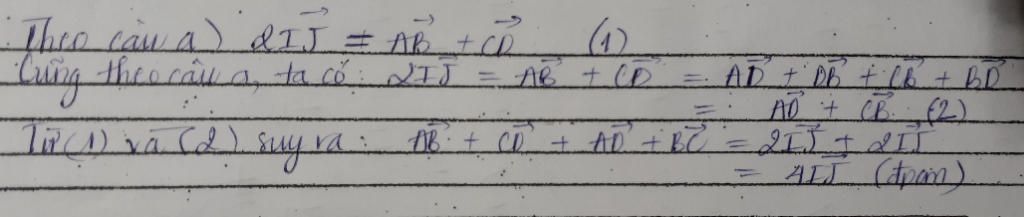 Theo câu a) 2IJ⃗ = AB⃗ + CD⃗ (1)
Cũng theo câu a, ta có: 2IJ⃗ = AB⃗ + CD⃗ = AD⃗ + DB⃗ + CB⃗ + BD⃗
= AD⃗ + CB⃗ (2)
Từ (1) và (2) suy ra: AB⃗ + CD⃗ + AD⃗ + BC⃗ = 2IJ⃗ + 2IJ⃗
= 4IJ⃗ (đpcm)